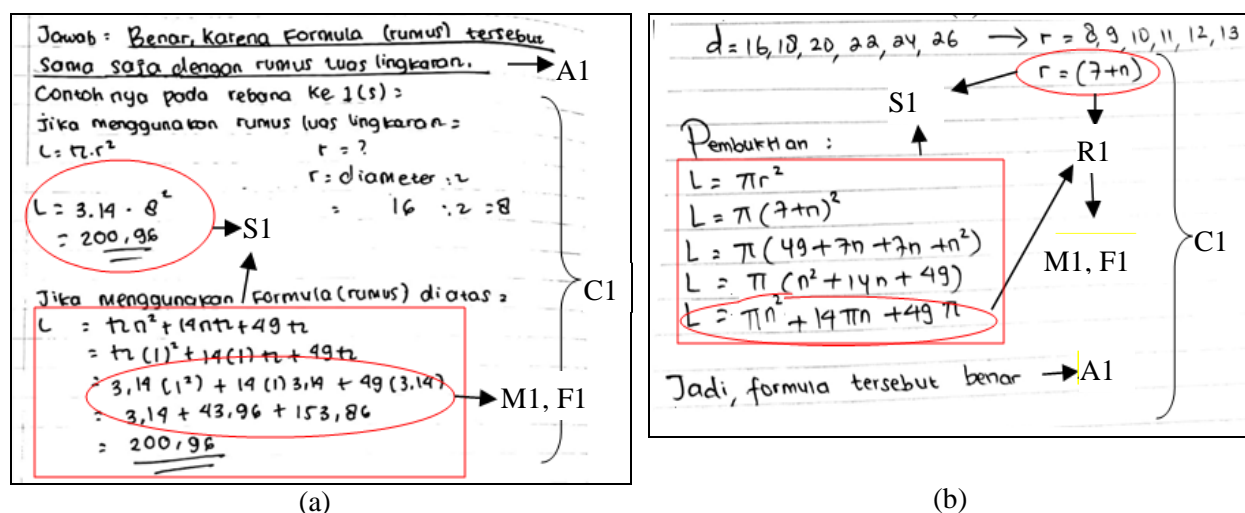 Jawab : Benar, Karena Formula (rumus) tersebut
Sama saja dengan rumus luas lingkaran.
A1
Contoh nya pada rebana Ke 1(s) :
Jika menggunakan rumus luas lingkaran :
L = π.r²
r = ?
r = diameter : 2
= 16 : 2 = 8
L = 3.14 . 8²
= 200,96
S1
Jika menggunakan Formula (rumus) diatas :
L = πn² + 14nπ + 49π
= π(1)² + 14(1)π + 49π
= 3,14 (1²) + 14 (1) 3,14 + 49 (3.14)
= 3,14 + 43,96 + 153,86
= 200,96
M1, F1
C1
(a)
d = 16, 18, 20, 22, 24, 26 → r = 8, 9, 10, 11, 12, 13
r = (7+n)
S1
R1
M1, F1
Pembuktian :
L = πr²
L = π(7+n)²
L = π(49+7n+7n+n²)
L = π (n²+14n+49)
L = πn² + 14πn + 49π
Jadi, formula tersebut benar
A1
C1
(b)